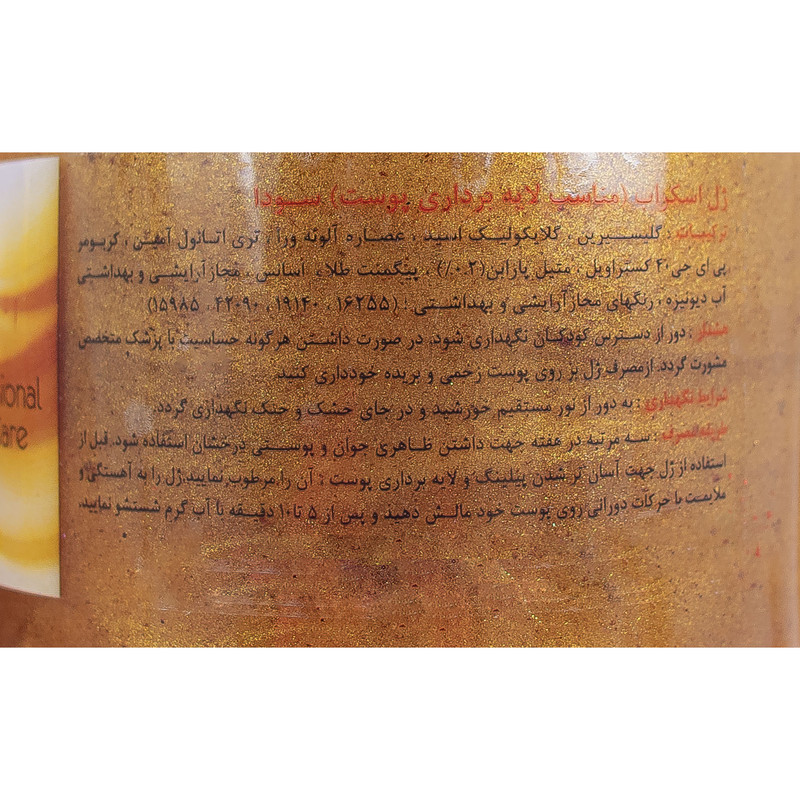 ژل اسکراب (مناسب لایه برداری پوست) سودا
ترکیبات : گلیسیرین ، گلایکولیک اسید ، عصاره آلوئه ورا ، تری اتانول آمین ، کربومر
پی ای جی ۴۰ کستراویل ، متیل پارابن (۰.۲٪) ، پیگمنت طلا ، اسانس ، مجاز آرایشی و بهداشتی
آب دیونیزه ، رنگهای مجاز آرایشی و بهداشتی : (۱۶۲۵۵ ، ۱۹۱۴۰ ، ۴۲۰۹۰ ، ۱۵۹۸۵)
هشدار : دور از دسترس کودکان نگهداری شود. در صورت داشتن هرگونه حساسیت با پزشک متخصص
مشورت گردد. از مصرف ژل بر روی پوست زخمی و بریده خودداری کنید.
شرایط نگهداری : به دور از نور مستقیم خورشید و در جای خشک و خنک نگهداری گردد.
طریقه مصرف : سه مرتبه در هفته جهت داشتن ظاهری جوان و پوستی درخشان استفاده شود. قبل از
استفاده از ژل جهت آسان تر شدن پیلینگ و لایه برداری پوست : آن را مرطوب نمایید. ژل را به آهستگی و
ملایمت با حرکات دورانی روی پوست خود مالش دهید و پس از ۵ تا ۱۰ دقیقه با آب گرم شستشو نمایید.
sional
are